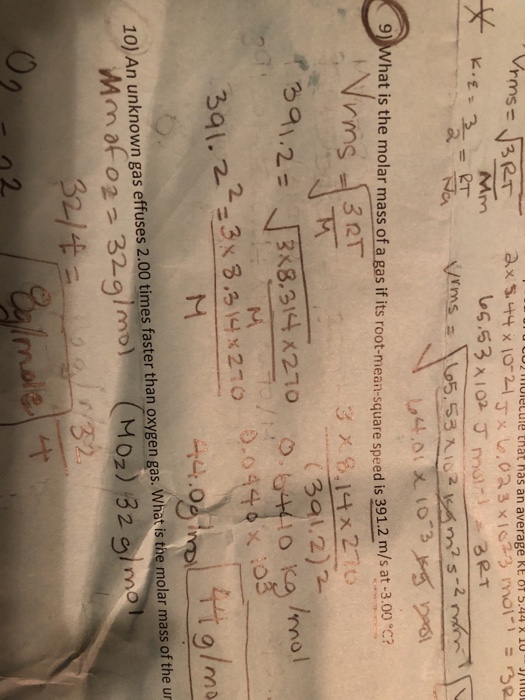 Vrms = √3RT
Mm
K.E = 3/2 = RT
Na
olecule that has an average KE of 5.44 x 10
2 x 5.44 x 10-21 J x 6.023 x 1023 mol-1 = 3R
65.53 x 102 J mol-1 = 3RT
Vrms = √65.53 x 102 kg m2 s-2
64.01 x 10-3 kg
9) What is the molar mass of a gas if its root-mean-square speed is 391.2 m/s at -3.00 °C?
Vrms = √3RT
M
391.2 = √3x8.314x270
M
391.2 2 = 3x8.314x270
M
3 x 8.14 x 270
(391.2)2
0.0440 kg/mol
0.0440 x 103
44.0g/mol
44g/mo
10) An unknown gas effuses 2.00 times faster than oxygen gas. What is the molar mass of the un
Mm of O2 = 32g/mol
(MO2) 32g/mol
32/4 =
32
4
8g/mole
O2 = 32